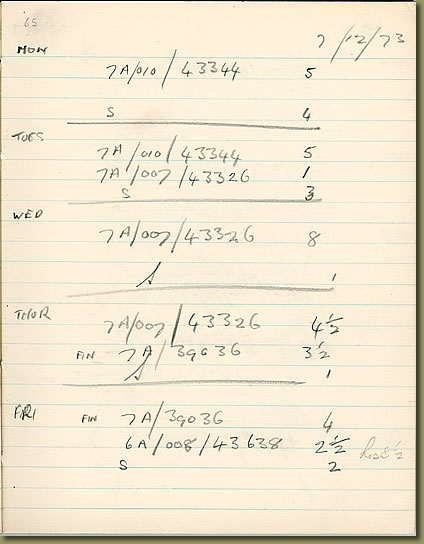 65
7/12/73
MON
7A/010/43344 5
S 4
TUES
7A/010/43344 5
7A/007/43326 1
S 3
WED
7A/007/43326 8
S 1
THUR
7A/007/43326 4½
FIN 7A/39036 3½
S 1
FRI
FIN 7A/39036 4
6A/008/43638 2½
S 2